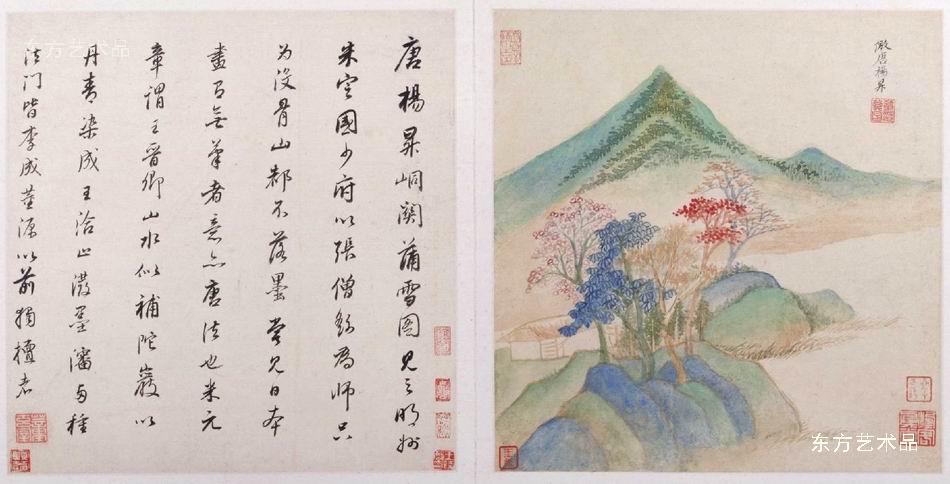 东方艺术品
唐楊昇峒関蒲雪图見之明州
朱定國少府以張僧繇為師只
为没骨山都不落墨嘗見日本
畫有無筆者意亦唐法也米元
章謂王晋卿山水似補陀巖以
丹青染成王洽止潑墨瀋两種
法門皆李成董源以前獨擅者
倣唐楊昇
东方艺术品